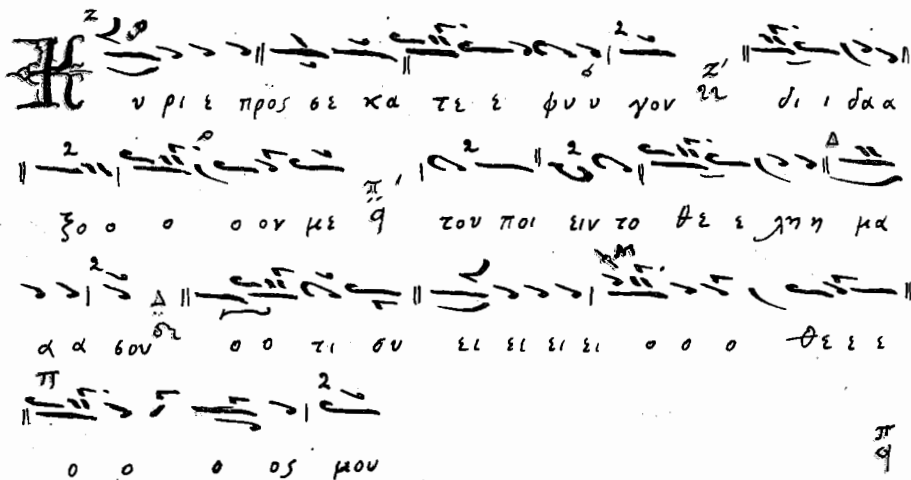 Κ υ ρι ε προς σε κα τε ε φυ υ γον δι ι δα α
ξο ο ο ο ον με του ποι ειν το θε ε λη η μα
α α σον ο ο τι συ ει ει ει ει ο ο ο θε ε ε
ο ο ο ος μου